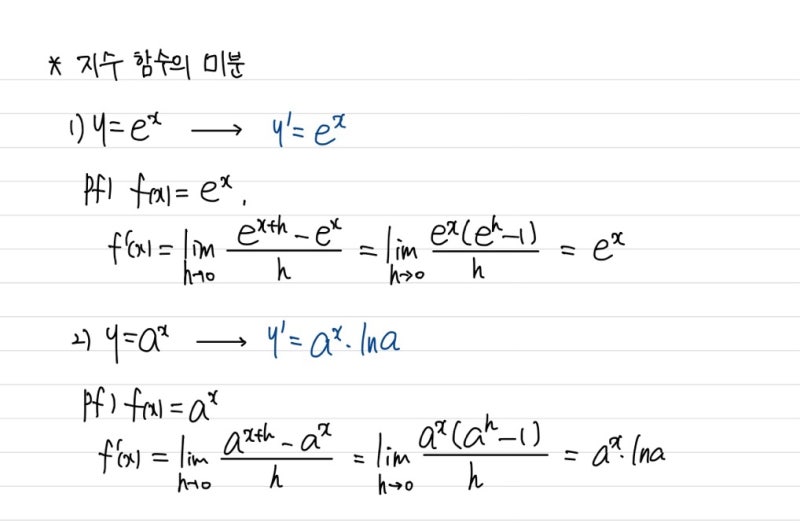 * 지수 함수의 미분
1) y = e^x → y' = e^x
pf) f(x) = e^x.
f'(x) = lim_{h→0} (e^{x+h} - e^x)/h = lim_{h→0} e^x(e^h - 1)/h = e^x
2) y = a^x → y' = a^x · ln a
pf) f(x) = a^x
f'(x) = lim_{h→0} (a^{x+h} - a^x)/h = lim_{h→0} a^x(a^h - 1)/h = a^x · ln a